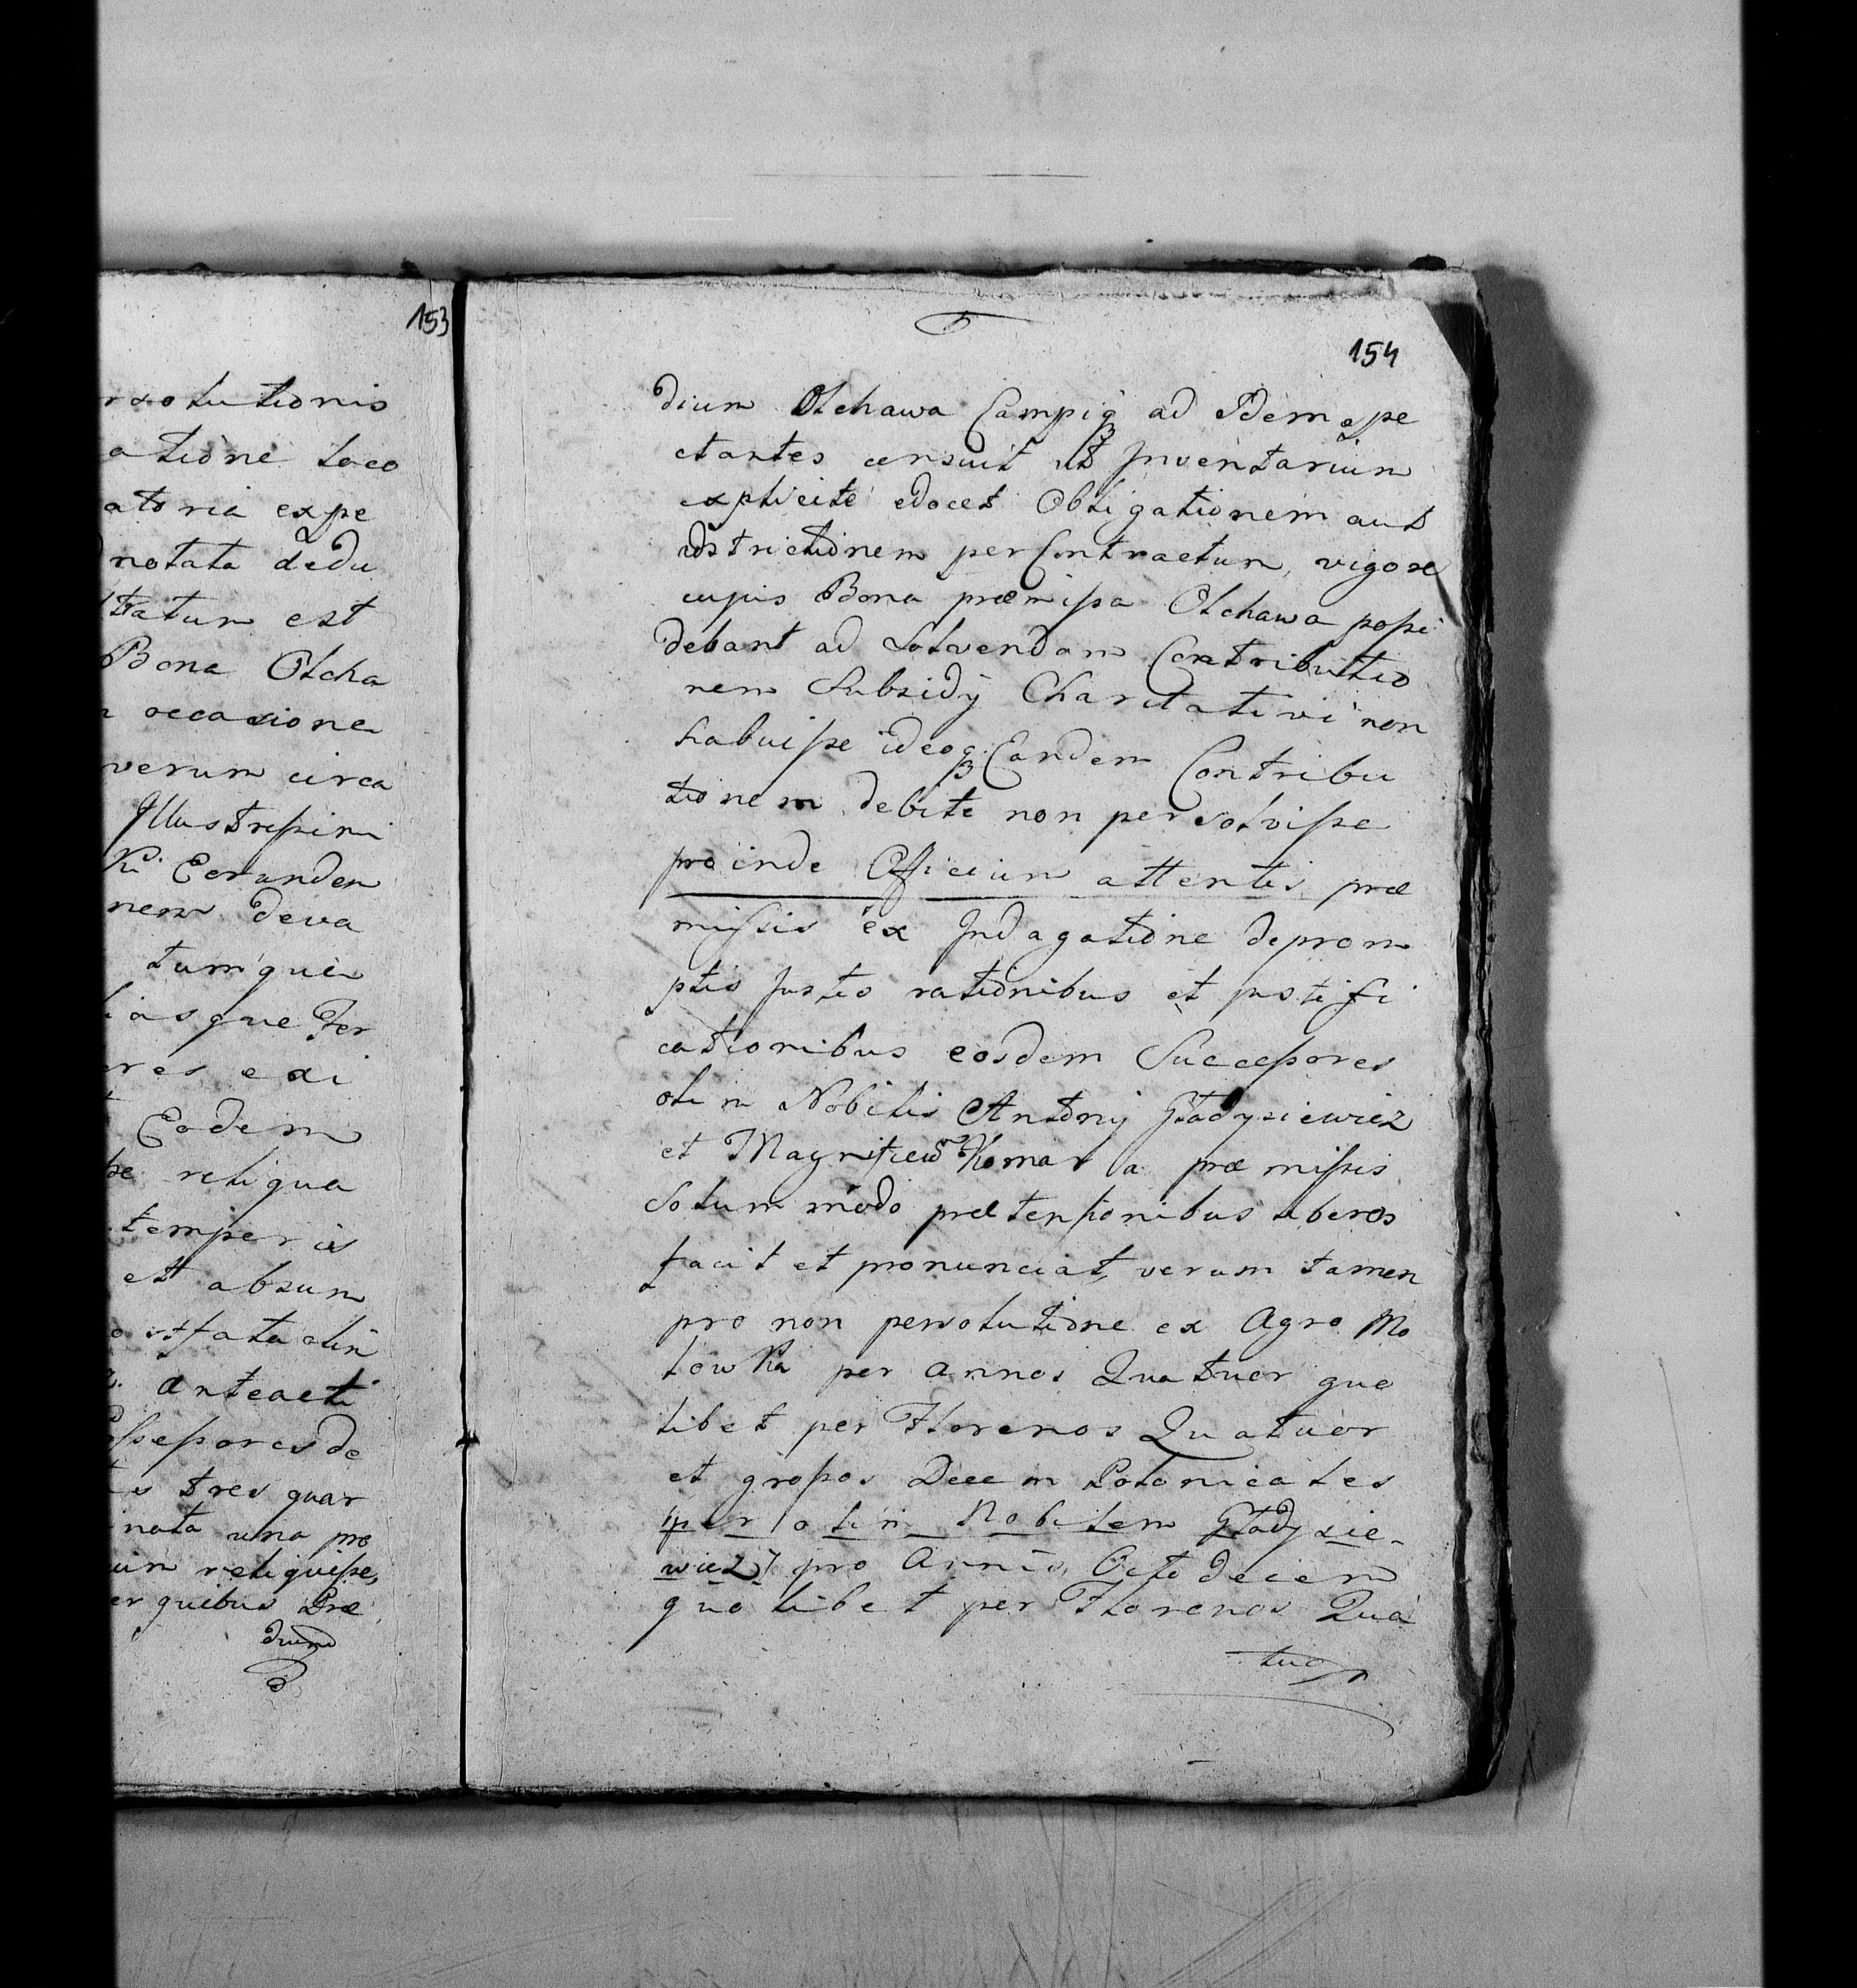 153
rsolutionis
atione loco
atoria expe
notata dedu
tratum est
Bona Olcha
occasione
verum circa
Illustrissimi
ki Eorundem
nem deva
tumque
iasque Fer
res exi
Eodem
reliqua
temperis
et absum
fata olim
anteacti
ssessores de
tres quar
nata una pro
um reliquisse,
er quibus Præ
dium
154
dium Olchawa Campiq3 ad Idem spe
ctantes censuit ut Inventarium
explicite edocet Obligationem aut
adstrictionem per Contractum, vigore
cujus Bona præmissa Olchawa possi
debant ad Solvendam Contributio
nem Subsidij Charitativi non
habuisse ideoq3 Eandem Contribu
tionem debite non persolvisse
proinde Officium attentis præ
missis ex Indagatione deprom
ptis Justis rationibus et justifi
cationibus eosdem Successores
olim Nobilis Antonij Gładysiewicz
et Magnificum Komar a præmissis
Solum modo prætensionibus liberos
facit et pronunciat, verum tamen
pro non persolutione ex Agro Mo
łowka per annos Quatuor quo
libet per Florenos Quatuor
et grossos Decem Polonicales
(per olim Nobilem Gładysie-
wicz) pro Annis Octodecem
quolibet per Florenos Qua
tuor